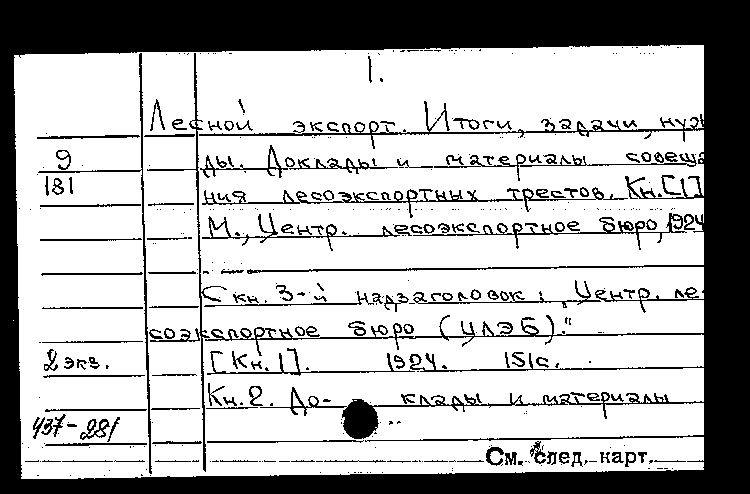 1.
Лесной экспорт. Итоги, задачи, нуж
9 ды. Доклады и материалы совеща
181 ния лесоэкспортных трестов. Кн. [1]
М., Центр. лесоэкспортное бюро, 1924
С кн. 3-й надзаголовок: „Центр. ле-
соэкспортное бюро (ЦЛЭБ)."
2 экз. [Кн. 1]. 1924. 151 с.
Кн. 2. До- клады и материалы
437-281
См. след. карт.